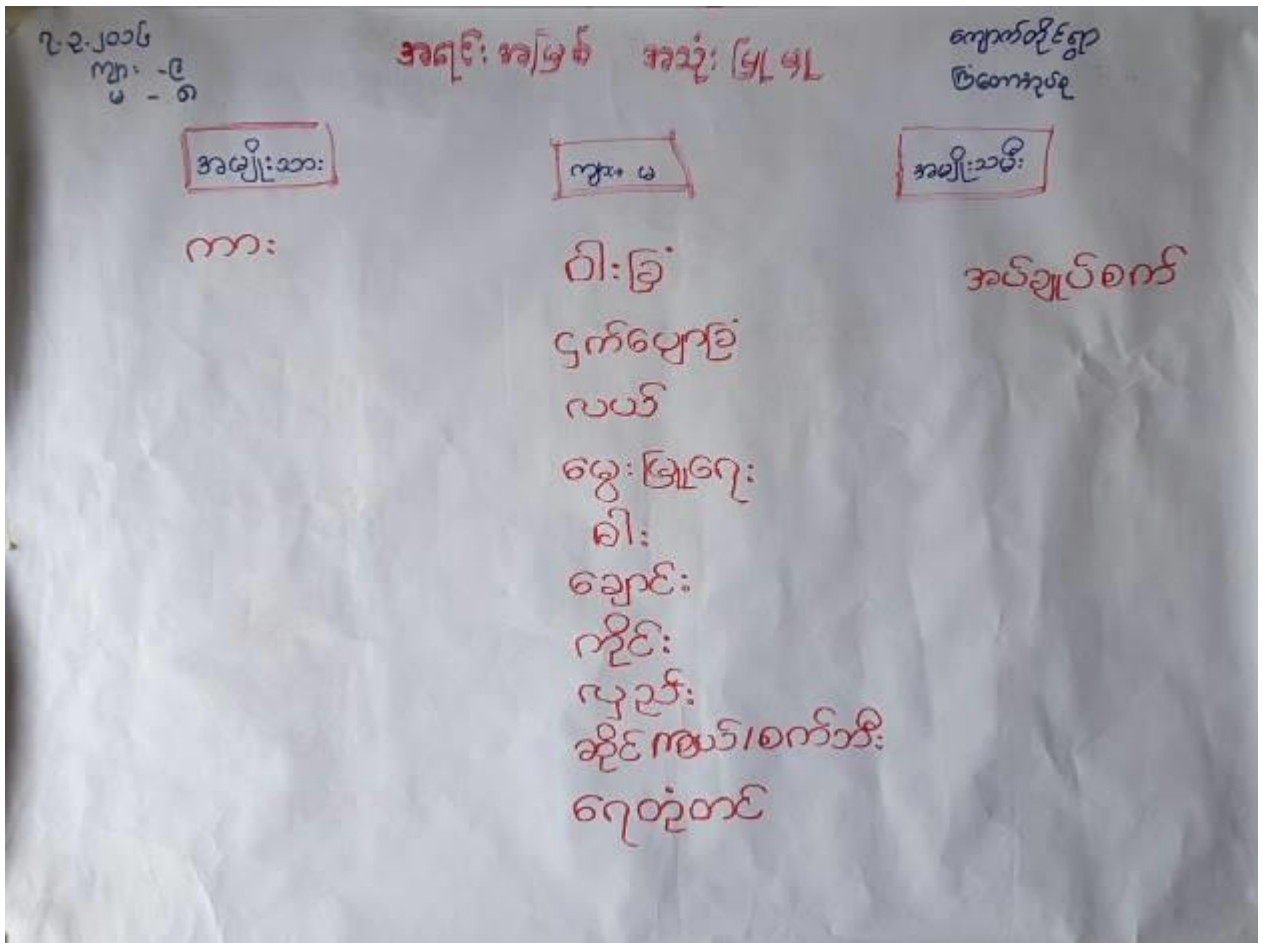 ၇.၃.၂၀၁၆
ကျား - ၉
မ - ၈
အရင်းအမြစ် အသုံးပြုမှု
ကျောက်တိုင်ရွာ
အမျိုးသား
ကျား၊ မ
အမျိုးသမီး
ကား
ဝါးခြံ
ငှက်ပျောခြံ
လယ်
မွေးမြူရေး
ဓါး
ချောင်း
ကိုင်း
လှည်း
ဆိုင်ကယ်/စက်ဘီး
ရေတုံတင်
အပ်ချုပ်စက်